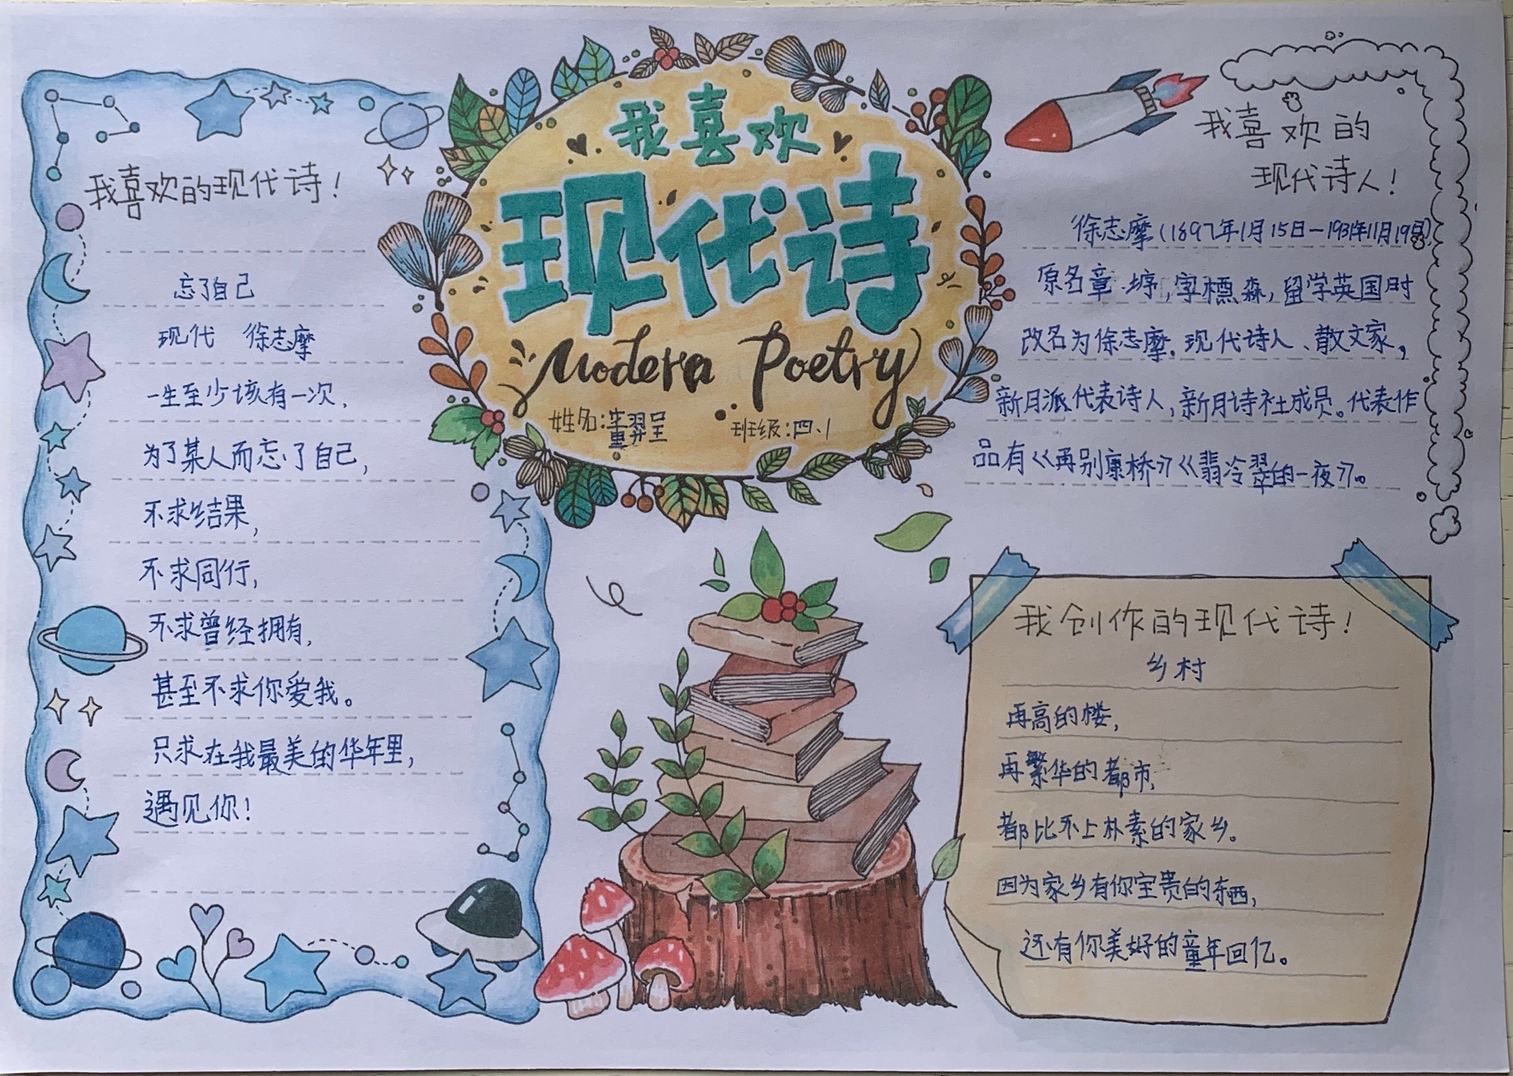 我喜欢
现代诗
Modern Poetry
姓名:董羿呈 班级:四、1
我喜欢的现代诗!
忘了自己
现代 徐志摩
一生至少该有一次,
为了某人而忘了自己,
不求结果,
不求同行,
不求曾经拥有,
甚至不求你爱我。
只求在我最美的华年里,
遇见你!
我喜欢的
现代诗人!
徐志摩(1897年1月15日-1931年11月19日)
原名章垿,字槱森,留学英国时
改名为徐志摩。现代诗人、散文家,
新月派代表诗人,新月诗社成员。代表作
品有《再别康桥》《翡冷翠的一夜》。
我创作的现代诗!
乡村
再高的楼,
再繁华的都市,
都比不上朴素的家乡。
因为家乡有你宝贵的东西,
还有你美好的童年回忆。